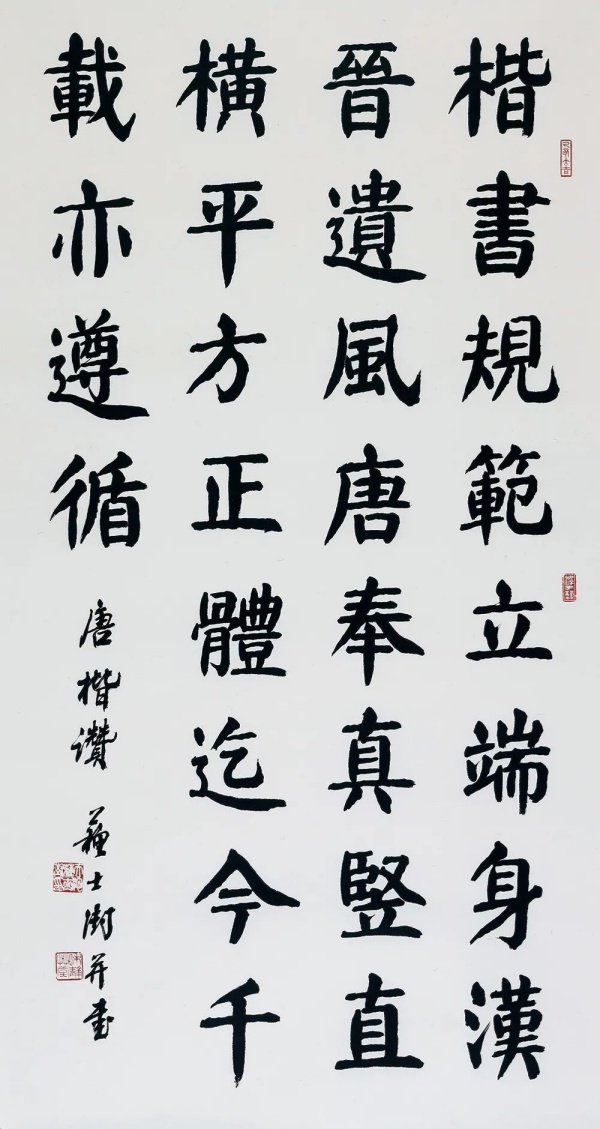 楷書規範立端身漢
晉遺風唐奉真豎直
橫平方正體迄今千
載亦遵循
唐楷讚 蘇士澍并書